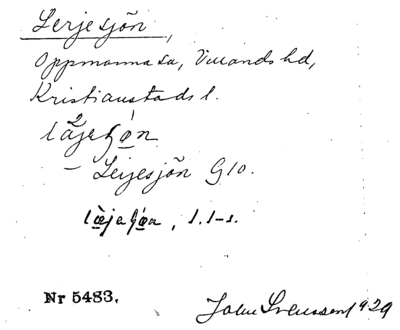 Lerjesjön,
Oppmanna sn, Villands hd,
Kristianstads l.
2
läjeɧøn
– Leijesjön G10.
l&#x0153;̀jaɧǿn, s. l-s.
Nr 5483.
John Svensson 1929